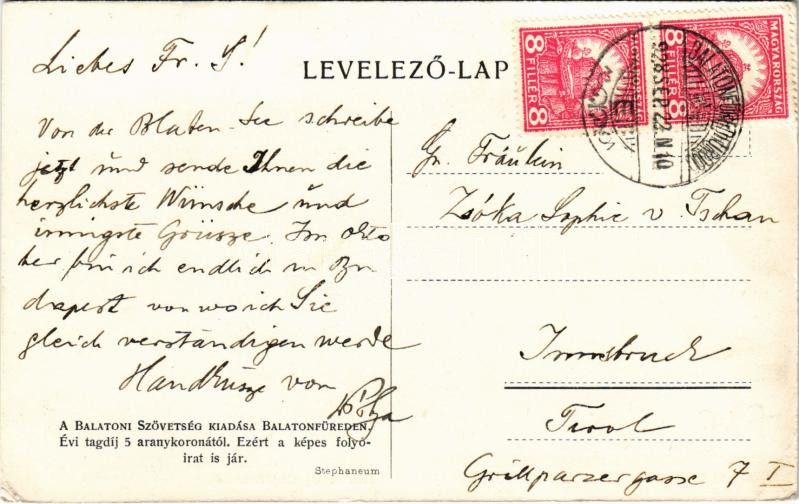 Liebes Fr. S!
LEVELEZŐ-LAP
8 FILLÉR 8
8 FILLÉR 8
MAGYARORSZÁG
928 SEP. 22. N 10
Von der Blaten-See schreibe
jetzt und sende Ihnen die
herzlichste Wünsche und
innigste Grüsze. Im Okto
ber bin ich endlich in Bu
dapest von wo ich Sie
gleich verständigen werde
Handküsze von
A BALATONI SZÖVETSÉG KIADÁSA BALATONFÜREDEN.
Évi tagdíj 5 aranykoronától. Ezért a képes folyó-
irat is jár.
Stephaneum
Gr. Fräulein
Zsóka Sophie v. Tschan
Innsbruck
Tirol
Grillparzergasse 7 I